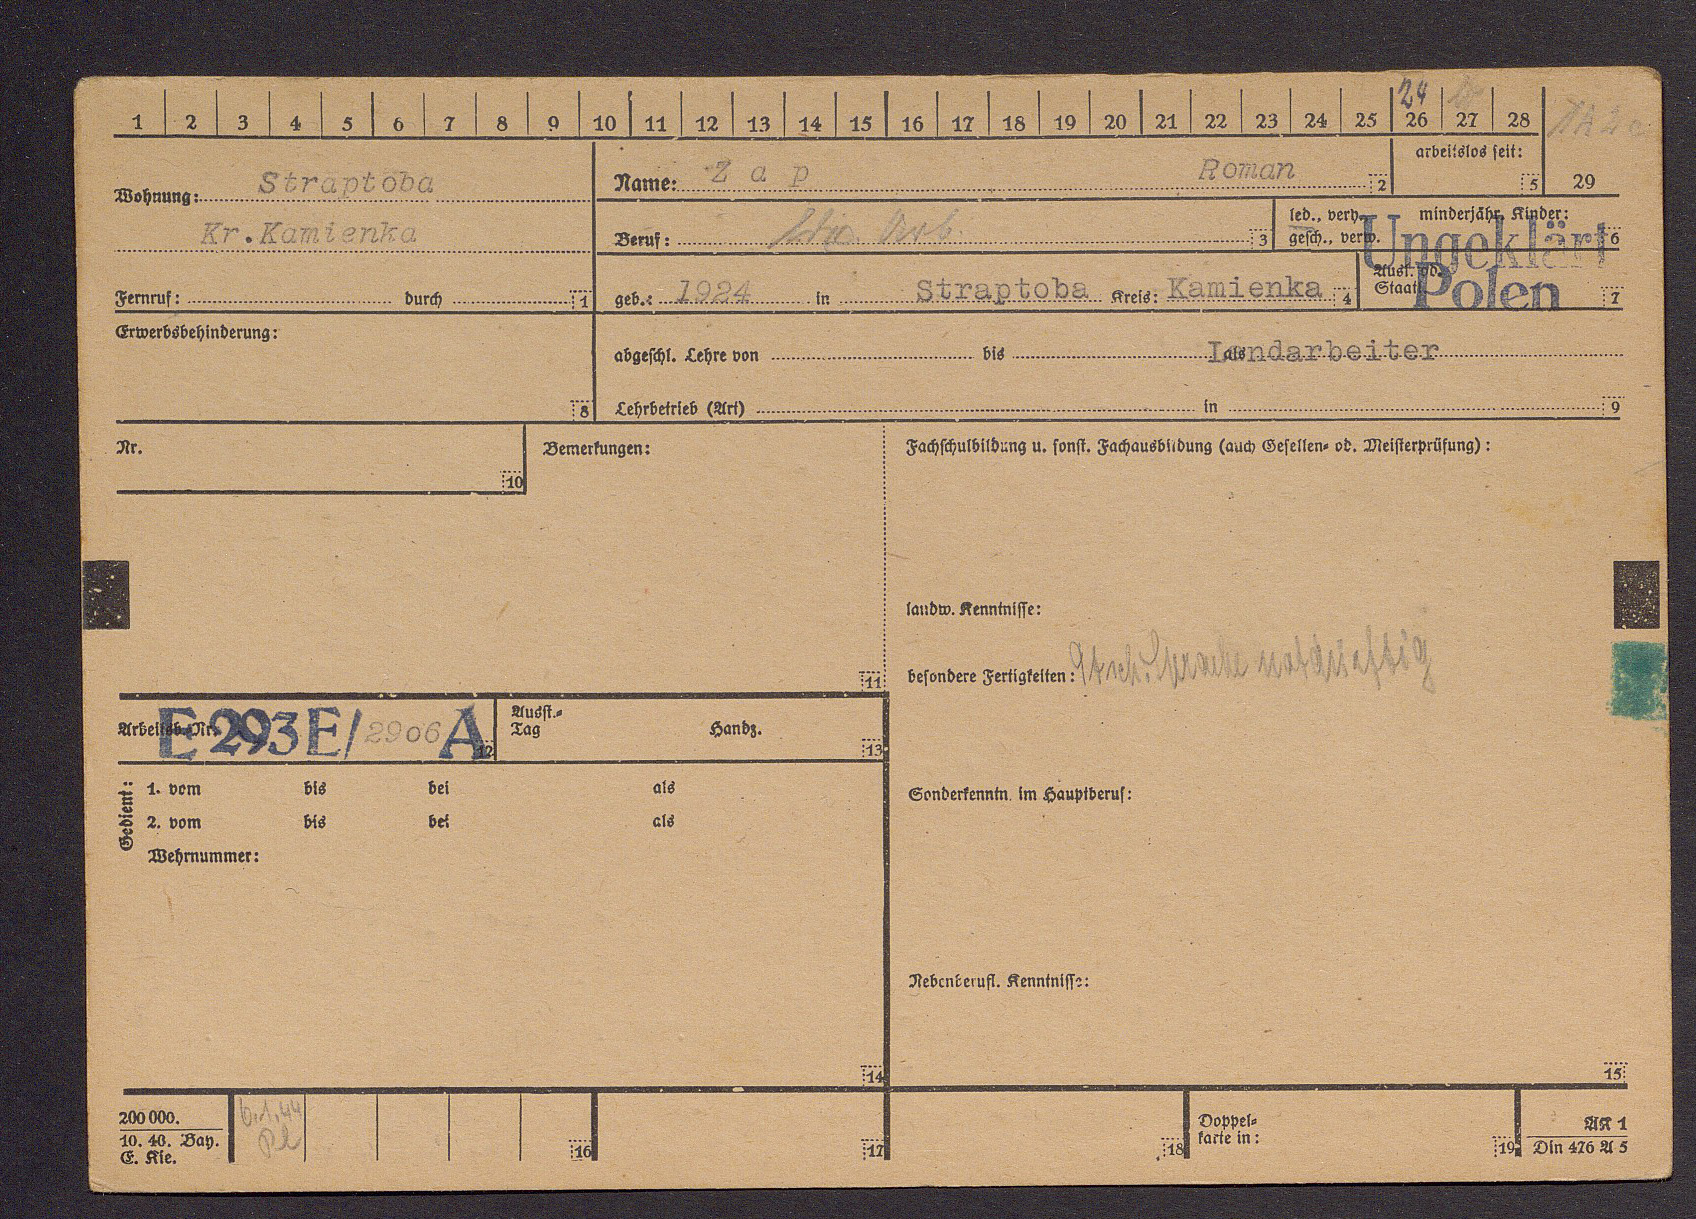 1 2 3 4 5 6 7 8 9 10 11 12 13 14 15 16 17 18 19 20 21 22 23 24 25 26 27 28
24
Wohnung: Straptoba
Kr.Kamienka
Fernruf: durch 1
Name: Z a p Roman 2
arbeitslos seit: 5
29
Beruf: 3
led., verh., gesch., verw.
minderjähr. Kinder: 6
Ungeklärt
Polen
Ausl. od. Staat 7
geb.: 1924 in Straptoba Kreis: Kamienka 4
Erwerbsbehinderung: 8
abgeschl. Lehre von bis als Landarbeiter
Lehrbetrieb (Art) in 9
Nr. 10
Bemerkungen: 11
Fachschulbildung u. sonst. Fachausbildung (auch Gesellen- od. Meisterprüfung):
landw. Kenntnisse:
besondere Fertigkeiten: Dtsch. Sprache notdürftig
Arbeitsb.Nr. E 293 E/2906 A 12
Ausst.-Tag Handz. 13
Gedient:
1. vom bis bei als
2. vom bis bei als
Wehrnummer:
14
Sonderkenntn. im Hauptberuf:
Nebenberufl. Kenntnisse:
15
200 000.
10. 40. Bay.
E. Kie.
6.1.44
16
17
18
Doppel-
karte in: 19
AK 1
Din 476 A 5